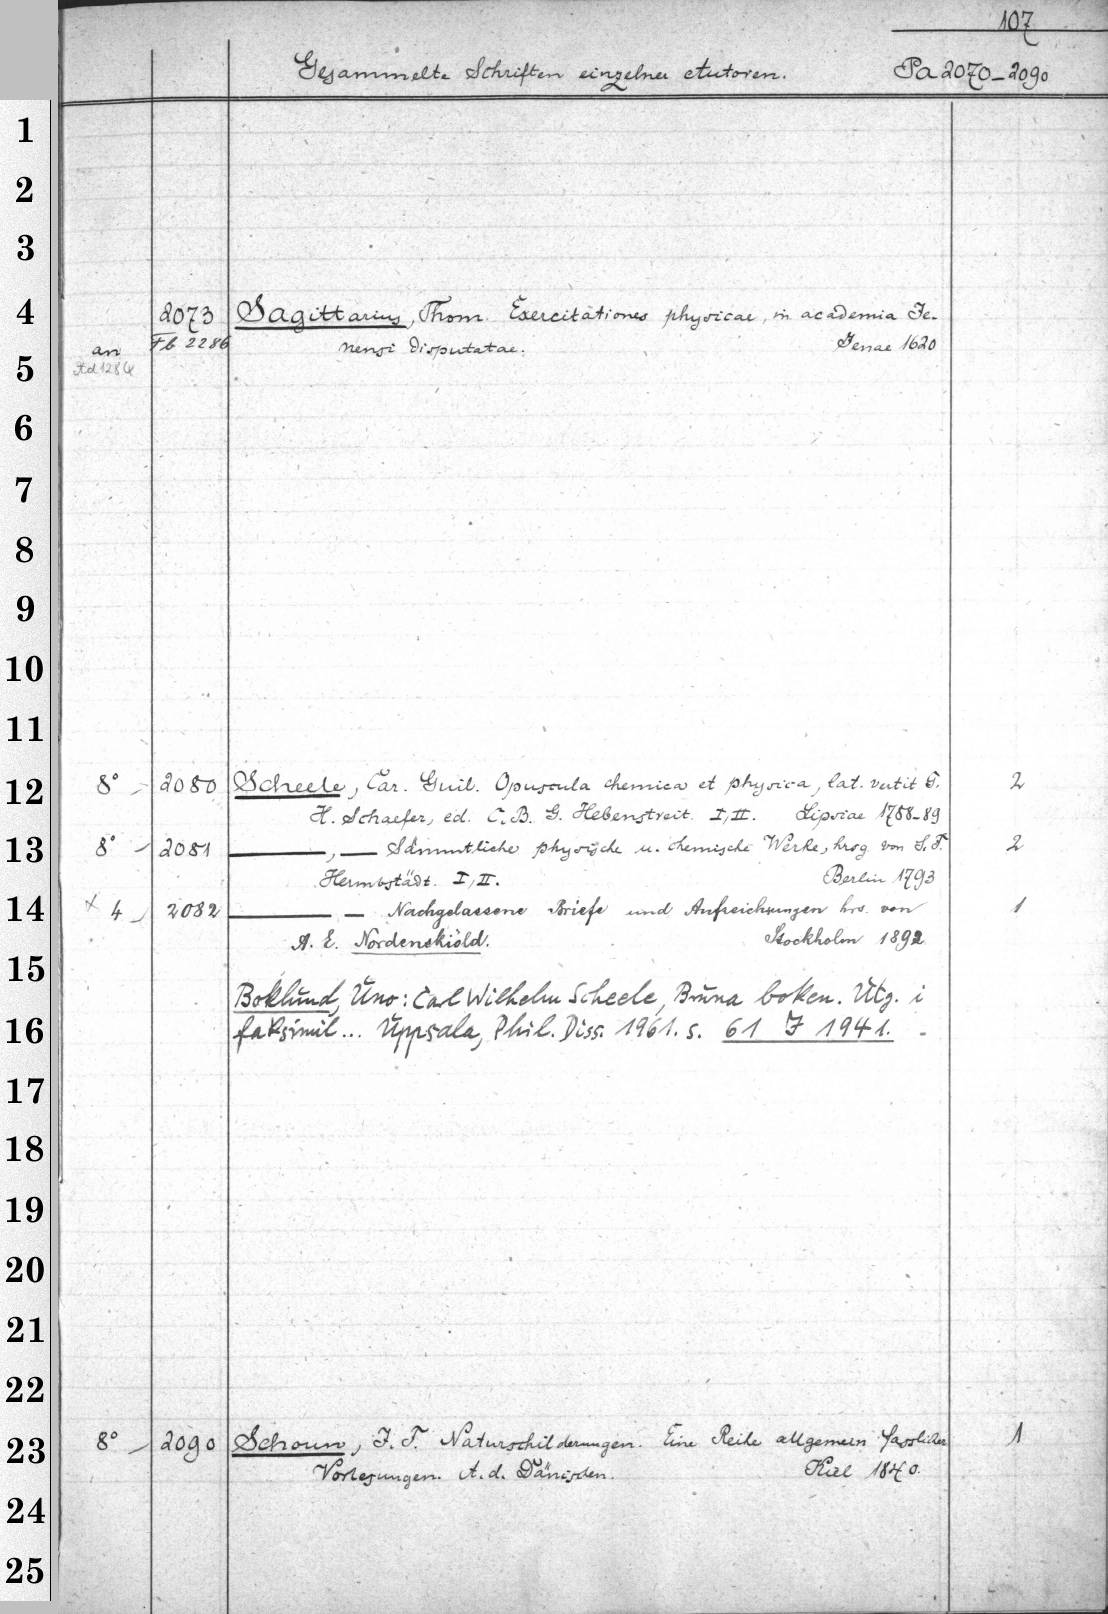 107
Gesammelte Schriften einzelner Autoren. Pa 2070-2090
1
2
3
4 2073 Sagittarius, Thom. Exercitationes physicae, in academia Je-
an Fb 2286 nensi disputatae. Jenae 1620
5
6
7
8
9
10
11
12 8° - 2080 Scheele, Car. Guil. Opuscula chemica et physica, lat. vertit G. 2
H. Schaefer, ed. C. B. G. Hebenstreit. I, II. Lipsiae 1788-89
13 8° - 2081 —, — Sämmtliche physische u. chemische Werke, hrsg von S. F. 2
Hermbstädt. I, II. Berlin 1793
14 x 4 - 2082 — — Nachgelassene Briefe und Aufzeichnungen hrs. von 1
A. E. Nordenskiöld. Stockholm 1892
15
Boklund, Uno: Carl Wilhelm Scheele, Bruna boken. Utg. i
16 faksimil... Uppsala, Phil. Diss. 1961. s. 61 J 1941. -
17
18
19
20
21
22
23 8° - 2090 Schouw, J. F. Naturschilderungen. Eine Reihe allgemein fasslicher 1
Vorlesungen. A. d. Dänischen. Kiel 1840.
24
25